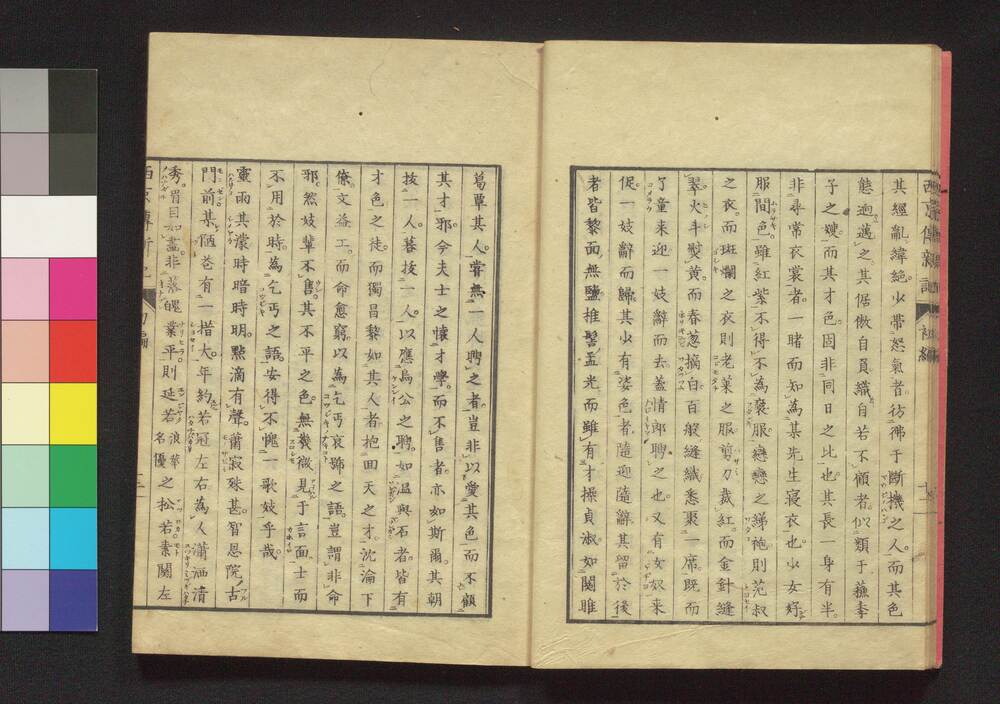 西京傳新記 初編
其經亂緯絶。少帶怒氣者。彷彿于斷機之人。而其色
態逈邁之。其倨傲自負。織自若不顧者。似類于蘓季
子之嫂。而其才色。固非同日之比也。其長一身有半。
非尋常衣裳者。一睹而知為某先生寢衣也。少女好
服間色。雖紅紫不得不為褻服。戀戀之綈袍則范叔
之衣。而斑斕之衣則老萊之服。剪刀裁紅。而金針縫
翠。火斗熨黄。而春葱摘白。百般縫織悉聚一席。既而
了童來迎。一妓辭而去。蓋情郎聘之也。又有女奴来
促。一妓辭而歸。其少有姿色者。隨迎隨辭。其留於後
者皆黎面無鹽。推髻孟光。而雖有才操貞淑如関雎
葛覃其人。嘗無一人聘之者。豈非以愛其色而不顧
其才邪。今夫士之懐才學。而不售者。亦如斯爾。其朝
抜一人。暮抜一人。以應烏公之聘。如温與石者。皆有
才色之徒。而獨昌黎如其人者抱回天之才。沈淪下
僚。文益工。而命愈窮。以為乞丐哀號之語。豈謂非命
邪。然妓輩不售。其不平之色。無幾微見于言面。士而
不用於時。為乞丐之語。安得不愧一歌妓乎哉。
靈雨其濛。時暗時明。點滴有聲。蕭寂殊甚。智恩院古
門前某個巷有一措大。年約若冠左右。為人瀟洒清
秀。眉目如畫。非落魄業平則延若浪華名優之松若素関左
西京傳新記 初編